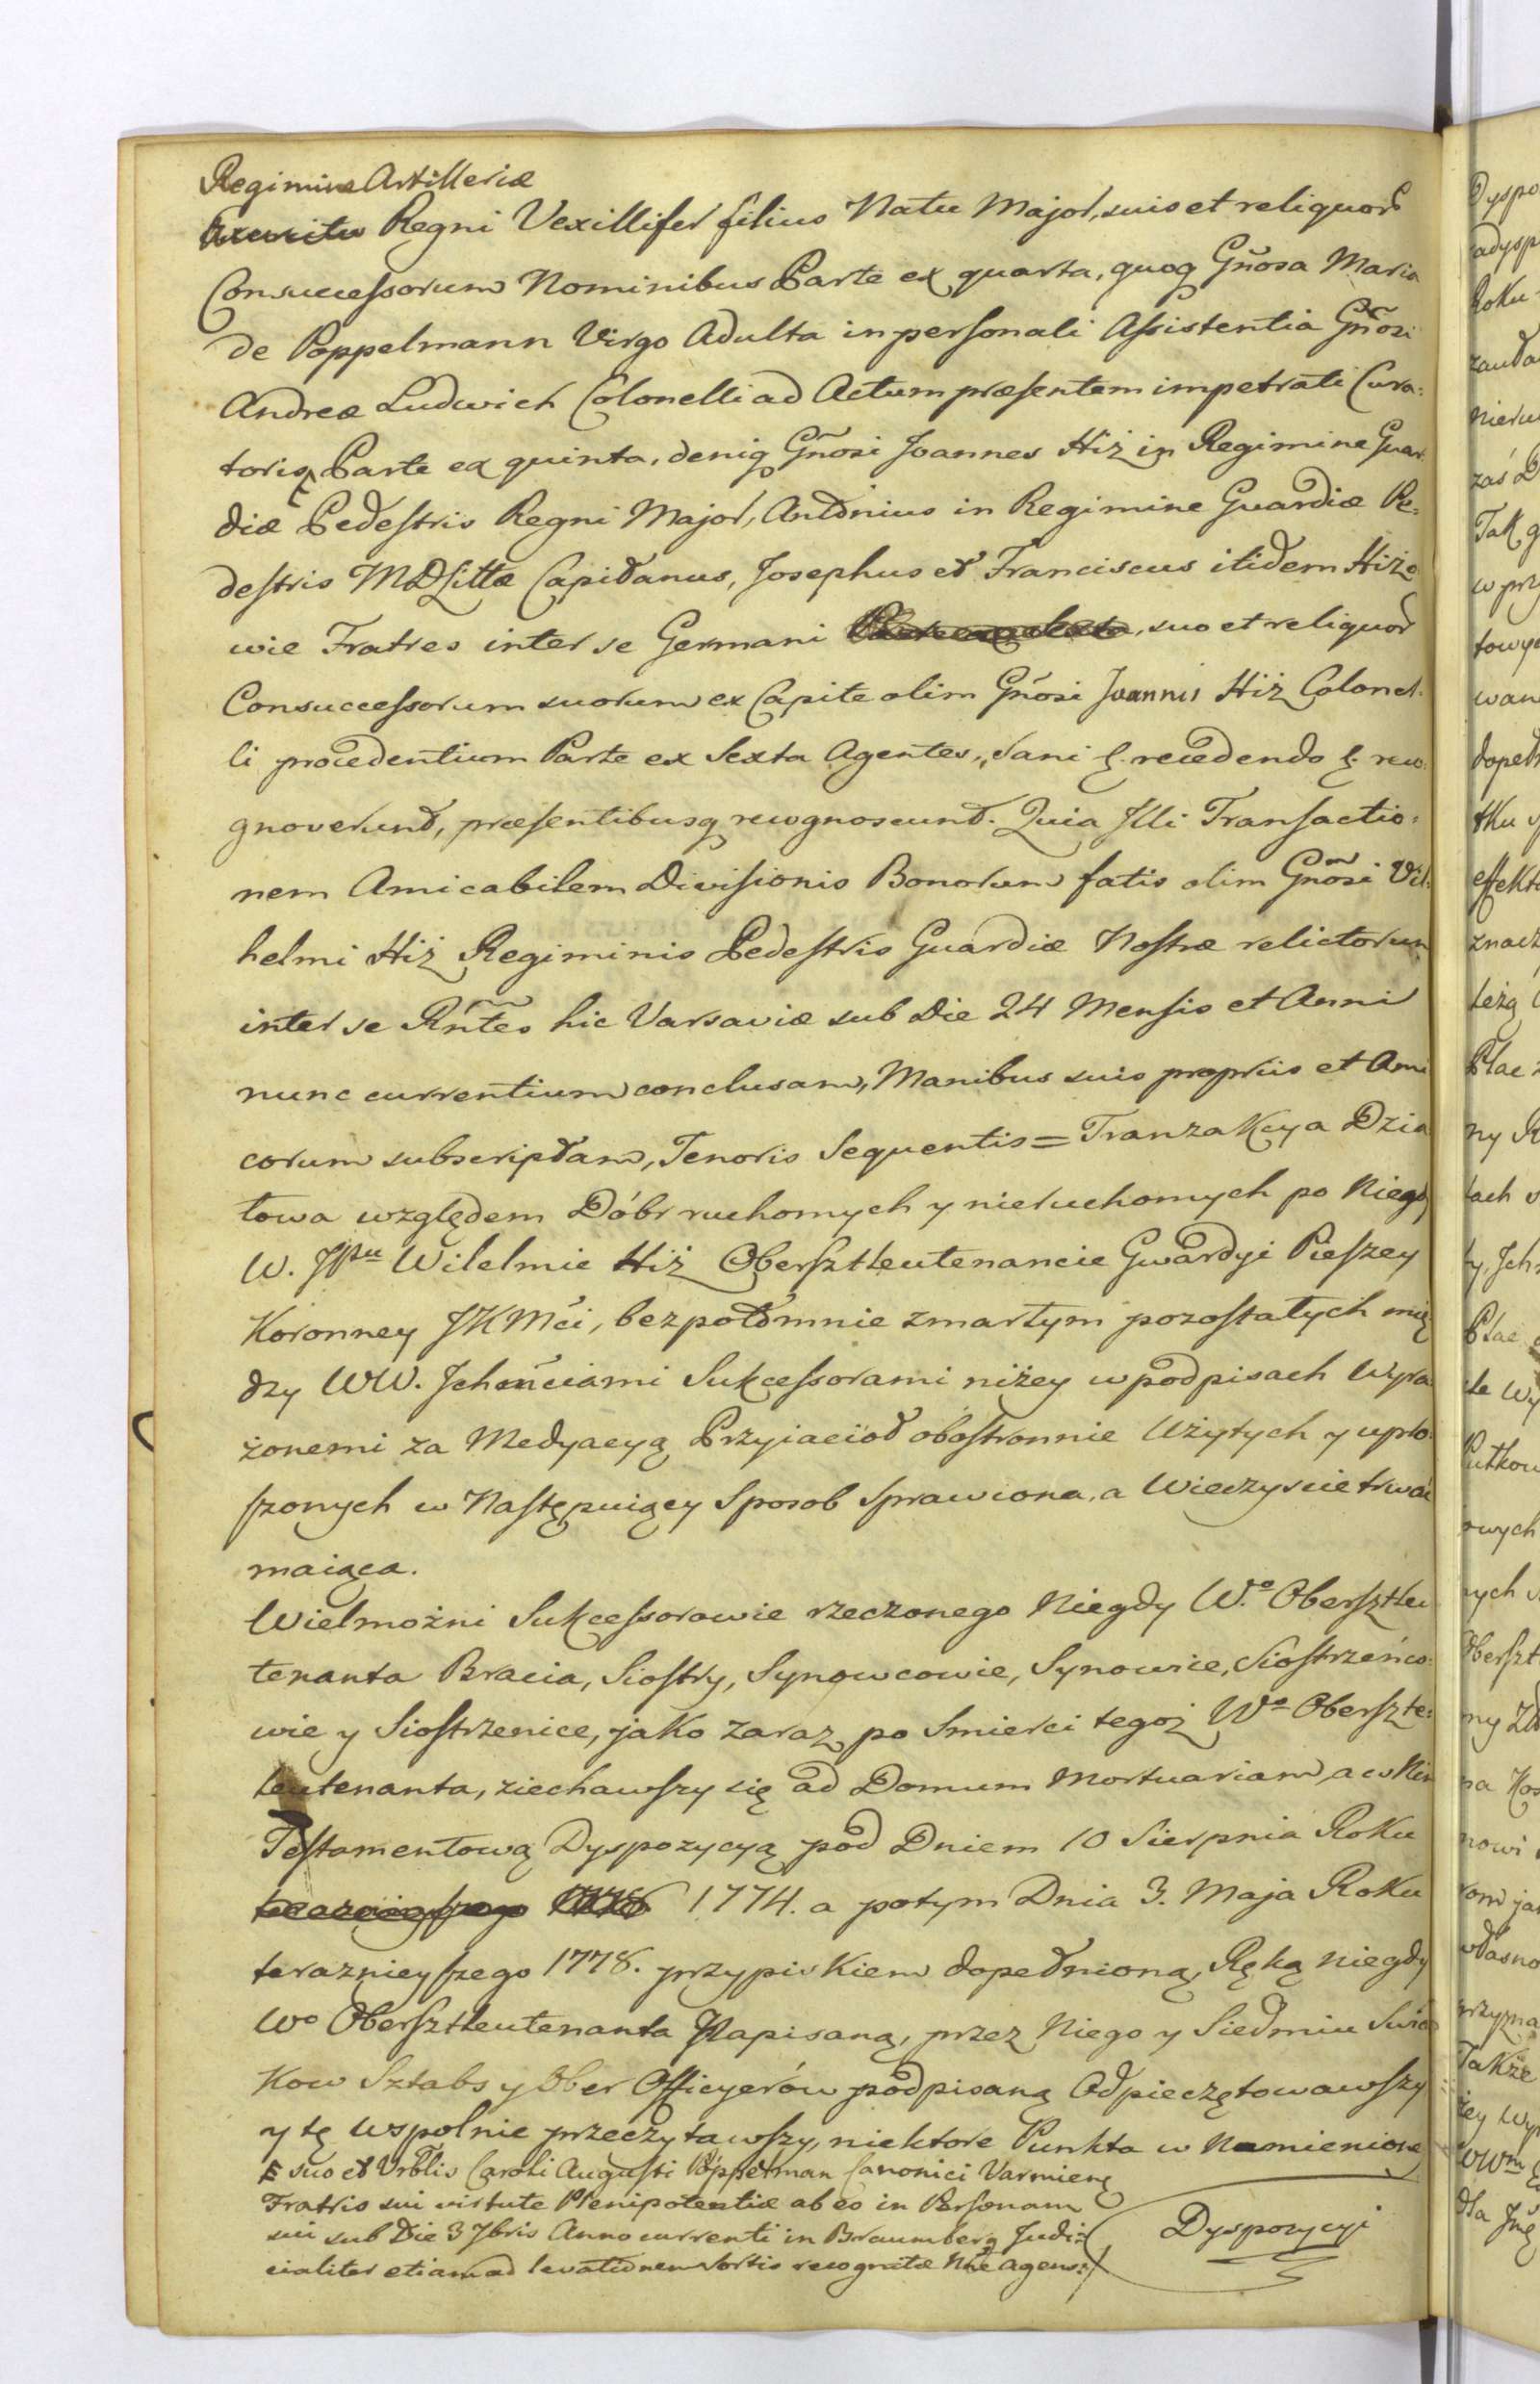 Regimine Artilleriæ
Regni Vexillifer filius Natu Major, suis et reliquor
Consuccessorum Nominibus Parte ex quarta, quoq Gñosa Maria
de Poppelmann Virgo Adulta in personali Assistentia Gñosi
Andreæ Ludwich Colonelli ad Actum præsentem impetrati Cura:
toris Parte ex quinta, deniq Gñosi Joannes Hiż in Regimine Guar
diæ Pedestris Regni Major, Antonius in Regimine Guardiæ Pe:
destris MDLittæ Capitanus, Josephus et Franciscus itidem Hiżo
wie Fratres inter se Germani, suo et reliquor
Consuccessorum suorum ex Capite olim Gñosi Joannis Hiż Colonel:
li procedentium Parte ex Sexta Agentes, Sani &. recedendo &. reco:
gnoverunt, præsentibusq recognoscunt. Quia Illi Transactio:
nem Amicabilem Divisionis Bonorum fatis olim Gñosi Vil:
helmi Hiż Regiminis Pedestris Guardiæ Nostræ relictorum
inter se Rñtes hic Varsaviæ sub Die 24 Mensis et Anni
nunc currentium conclusam, Manibus suis propriis et Ami
corum subscriptam, Tenoris Sequentis = Tranzakcya Dzia
łowa względem Dóbr ruchomych y nieruchomych po Niegdy
W. JPanu Wilelmie Hiż Obersztleutenancie Gwardyi Pieszey
Koronney JKMci, bezpotomnie zmarłym pozostałych mię
dzy WW. Ichmciami Sukcessorami niżey w podpisach Wyra
żonemi za Medyacyą Przyiaciół obostronnie Użytych y upro:
szonych w Następuiący Sposob Sprawiona, a Wieczyscie trwać
maiąca.
Wielmożni Sukcessorowie rzeczonego Niegdy Wo Obersztleu
tenanta Bracia, Siostry, Synowcowie, Synowice, Siostrzeńco:
wie y Siostrzenice, jako zaraz po Smierci tegoż Wo Obersztle:
leutenanta, ziechawszy się ad Domum Mortuariam, a w Nim
Testamentową Dyspozycyą pod Dniem 10 Sierpnia Roku
1774. a potym Dnia 3. Maja Roku
terazniey szego 1778. przypiskiem dopełnioną, Ręką niegdy
Wo Obersztleutenanta Napisaną, przez Niego y Siedmiu Swiad
kow Sztabs y Ober Officyerów podpisaną Odpieczętowawszy
y tę wspolnie przeczytawszy, niektore Punkta w Namienioney
suo et Vrblis Caroli Augusti Poppelman Canonici Varmien
Fratris sui virtute Plenipotentiæ ab eo in Personam
sui sub Die 3 7bris Anno currenti in Braumberg Judi:
cialiter etiam ad levationem Sortis recognitæ Nñe Agens:
Dyspozycyi